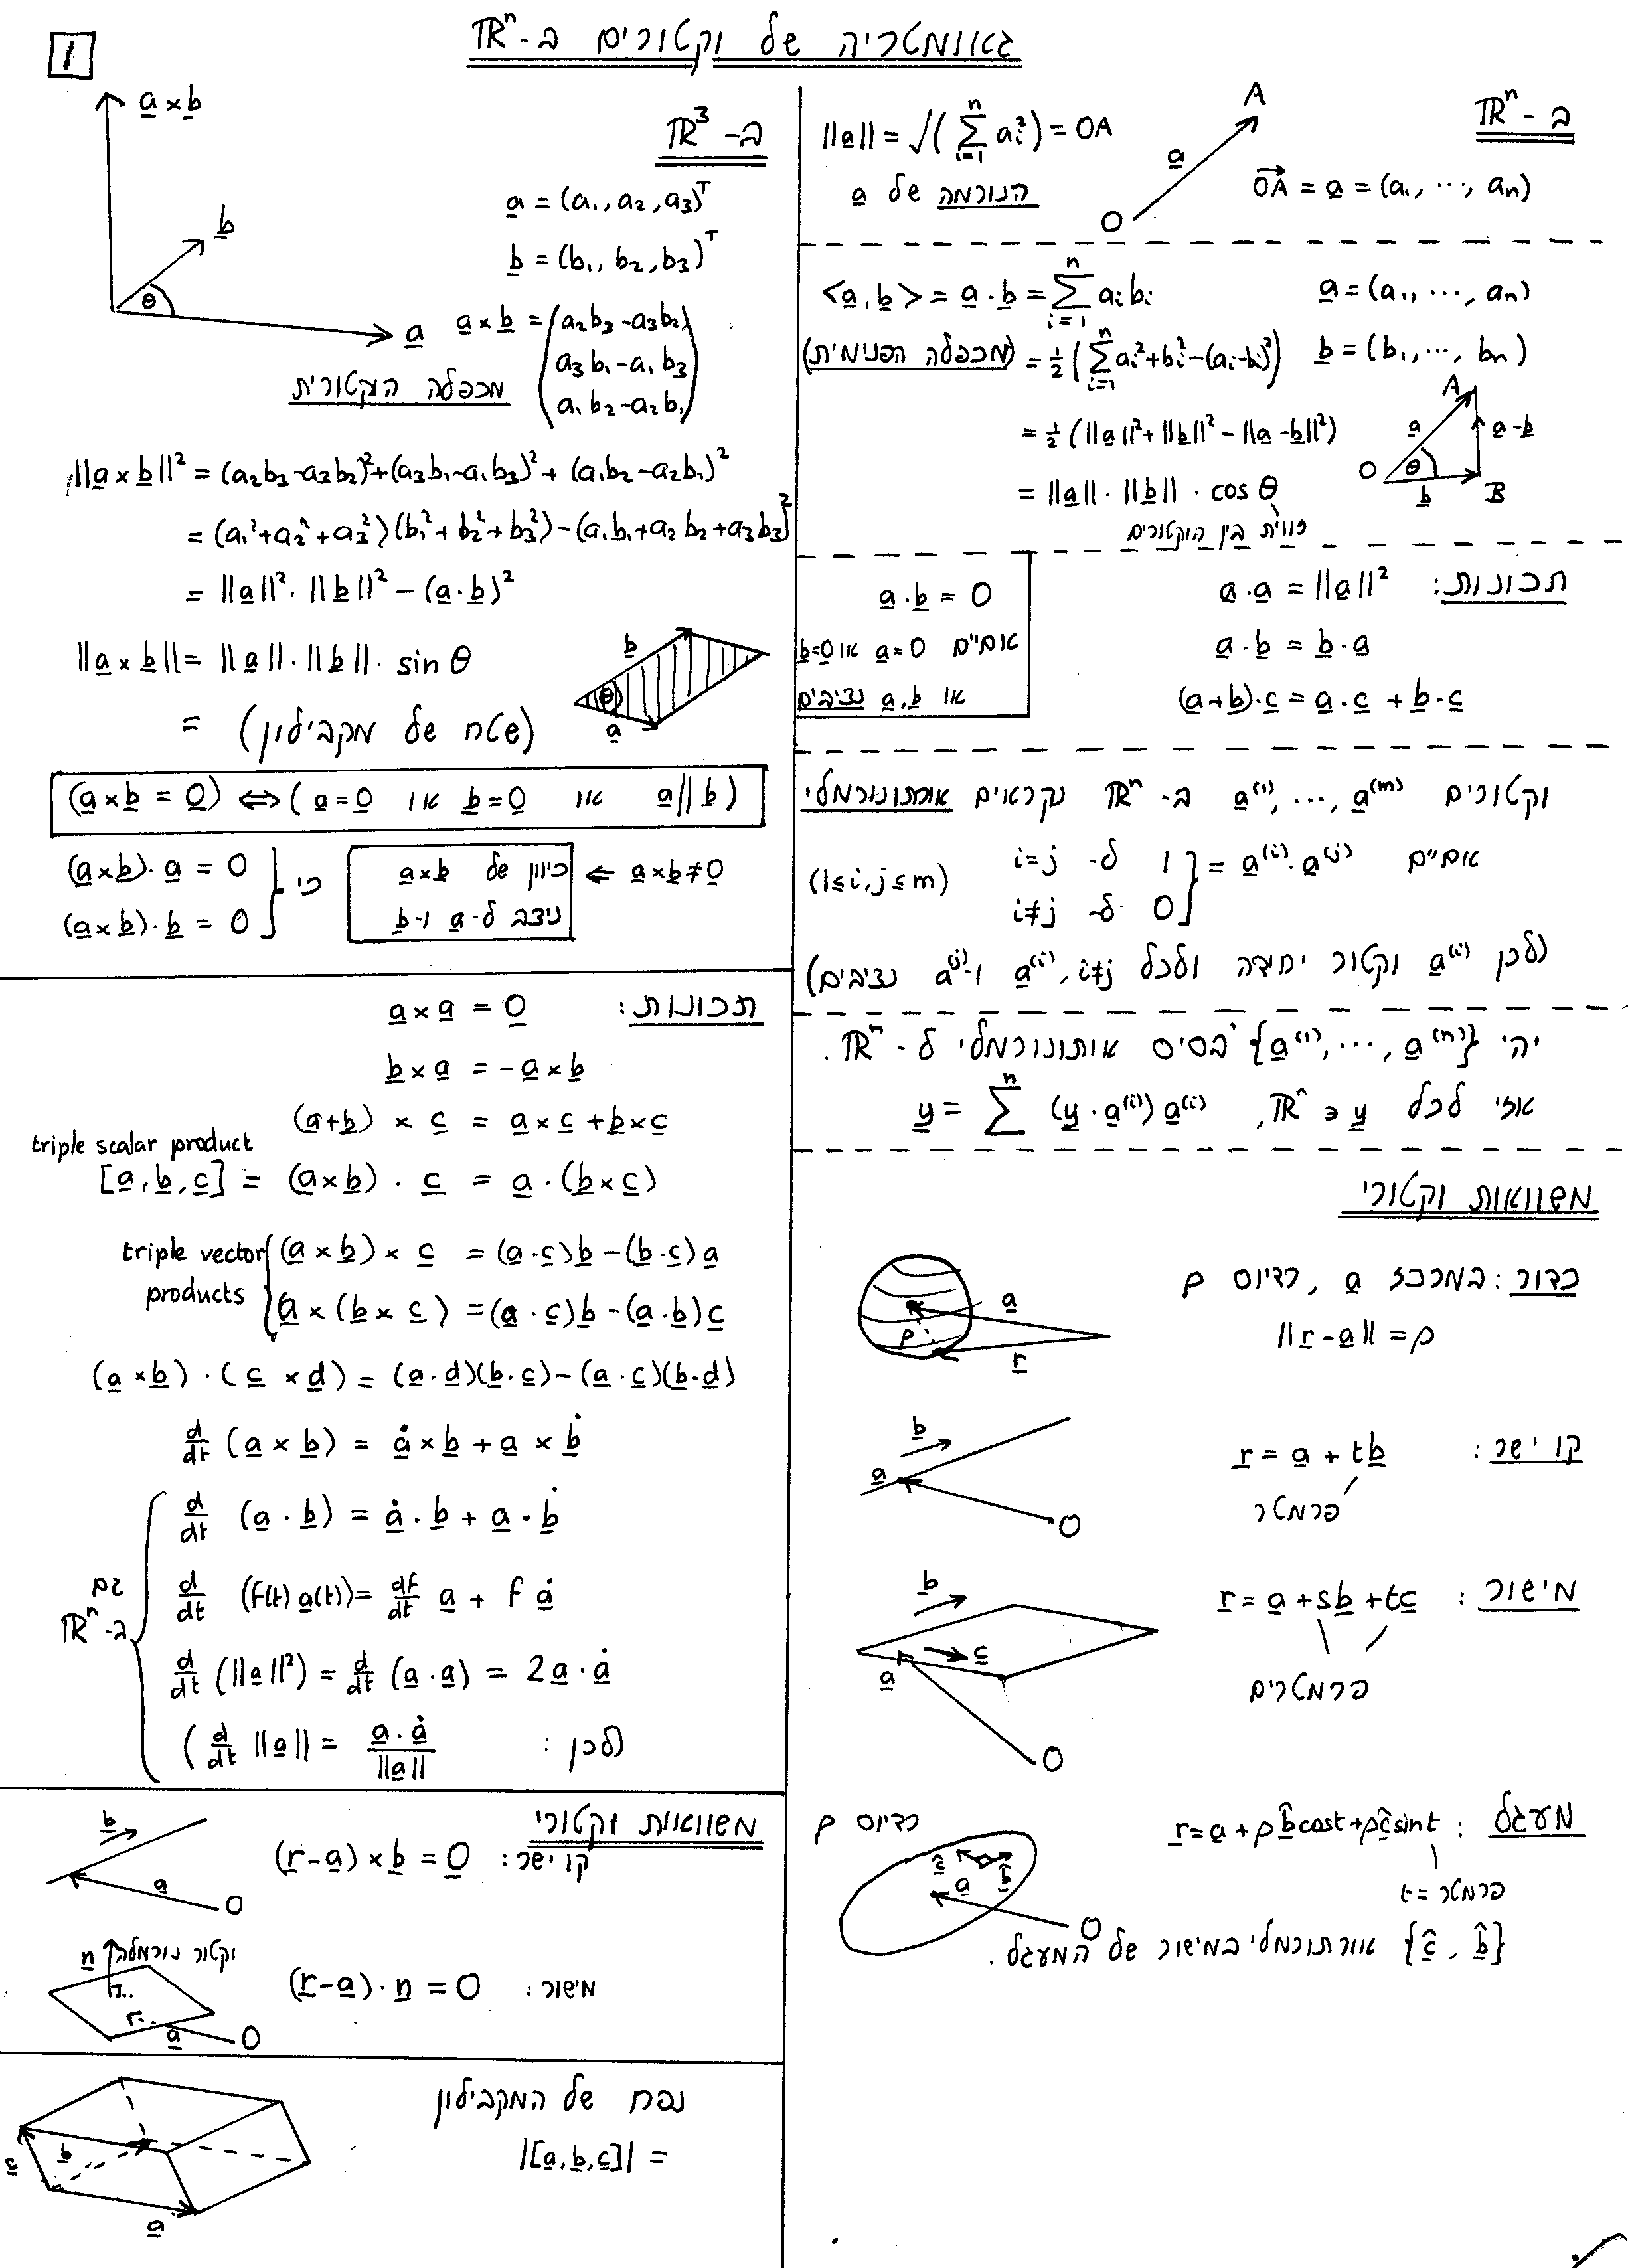 1
גאומטריה של וקטורים ב-ℝⁿ
ב-ℝⁿ
A
a
O
OA = a = (a₁, ⋯, aₙ)
||a|| = √(∑ᵢ₌₁ⁿ aᵢ²) = OA
הנורמה של a
a = (a₁, ⋯, aₙ)
<a, b> = a · b = ∑ᵢ₌₁ⁿ aᵢbᵢ
b = (b₁, ⋯, bₙ)
(מכפלה הפנימית) = ½(∑ᵢ₌₁ⁿ aᵢ² + bᵢ² − (aᵢ−bᵢ)²)
= ½(||a||² + ||b||² − ||a−b||²)
A
a
a−b
O θ b B
= ||a|| · ||b|| · cos θ
זווית בין הוקטורים
תכונות: a · a = ||a||²
a · b = b · a
(a+b) · c = a · c + b · c
a · b = 0
אמ"ם a=0 או b=0
או a, b נציבים
וקטורים a⁽¹⁾, ⋯, a⁽ᵐ⁾ ב-ℝⁿ נקראים אורתונורמלי
אמ"ם a⁽ⁱ⁾ · a⁽ʲ⁾ = { 1 ל- i=j
0 ל- i≠j } (1≤i,j≤m)
(לכן a⁽ⁱ⁾ וקטור יחידה ולכל i≠j, a⁽ⁱ⁾ ו-a⁽ʲ⁾ נציבים)
יהי {a⁽¹⁾, ⋯, a⁽ⁿ⁾} בסיס אותונורמלי ל-ℝⁿ.
אזי לכל y ∈ ℝⁿ, y = ∑ⁿ (y · a⁽ⁱ⁾) a⁽ⁱ⁾
משוואות וקטורי
כדור: במרכז a, רדיוס ρ
||r − a|| = ρ
a
ρ
r
קו ישר: r = a + tb
פרמטר
b
a
O
מישור: r = a + sb + tc
פרמטרים
b
c
a
O
מעגל: r = a + ρb̂cost + ρĉsint
t = פרמטר
רדיוס ρ
ĉ
b̂
a
O
{ĉ, b̂} אורתורמלי במישור של המעגל.
ב-ℝ³
a×b
b
θ
a
a = (a₁, a₂, a₃)ᵀ
b = (b₁, b₂, b₃)ᵀ
a×b = (a₂b₃−a₃b₂
a₃b₁−a₁b₃
a₁b₂−a₂b₁)
מכפלה הוקטורית
||a×b||² = (a₂b₃−a₃b₂)² + (a₃b₁−a₁b₃)² + (a₁b₂−a₂b₁)²
= (a₁²+a₂²+a₃²)(b₁²+b₂²+b₃²) − (a₁b₁+a₂b₂+a₃b₃)²
= ||a||² · ||b||² − (a · b)²
||a×b|| = ||a|| · ||b|| · sin θ
= (שטח של מקבילון)
b
θ
a
(a×b = 0) ⇔ (a=0 או b=0 או a∥b)
a×b≠0 ⇐ כיוון של a×b
ניצב ל-a ו-b
כי { (a×b) · a = 0
(a×b) · b = 0
תכונות: a×a = 0
b×a = −a×b
(a+b) × c = a×c + b×c
triple scalar product
[a, b, c] = (a×b) · c = a · (b×c)
triple vector products { (a×b) × c = (a·c)b − (b·c)a
a × (b×c) = (a·c)b − (a·b)c
(a×b) · (c×d) = (a·d)(b·c) − (a·c)(b·d)
d/dt (a×b) = ȧ×b + a×ḃ
גם ב-ℝⁿ
d/dt (a · b) = ȧ · b + a · ḃ
d/dt (f(t) a(t)) = df/dt a + f ȧ
d/dt (||a||²) = d/dt (a · a) = 2a · ȧ
(לכן: d/dt ||a|| = a · ȧ / ||a||
משוואות וקטורי
קו ישר: (r−a) × b = 0
b
a
O
מישור: (r−a) · n = 0
n וקטור נורמלה
r
a
O
נפח של המקבילון
= |[a, b, c]|
c
b
a